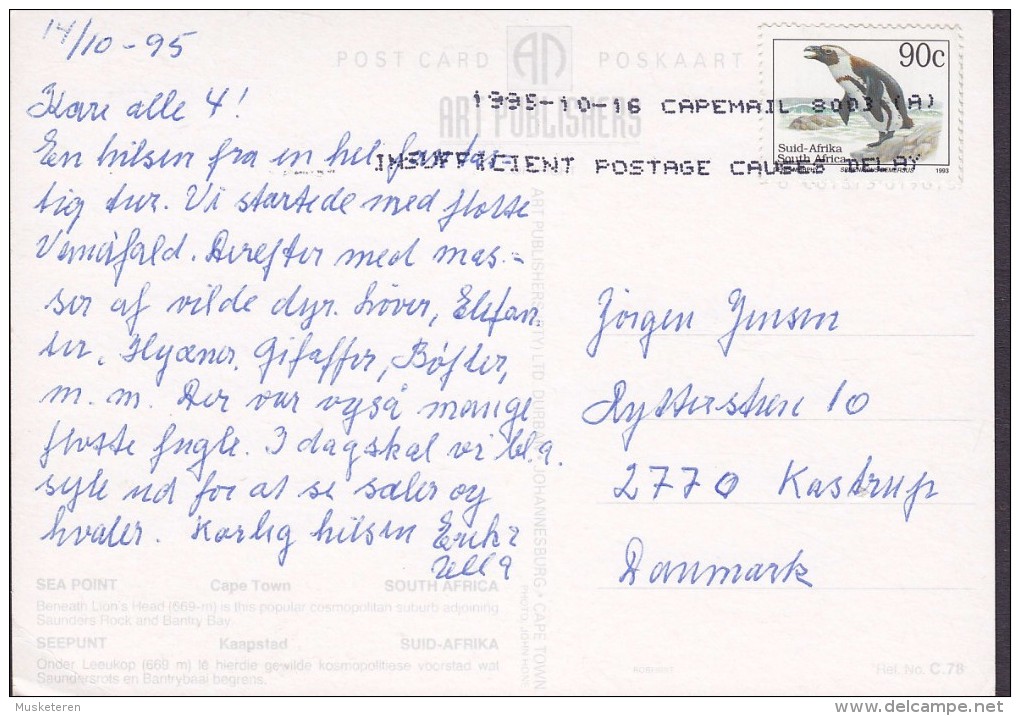 14/10-95
POST CARD AN POSKAART
ART PUBLISHERS
90c
Suid-Afrika
South Africa
SPHENISCUS DEMERSUS 1993
1995-10-16 CAPEMAIL 8003 (A)
INSUFFICIENT POSTAGE CAUSES DELAY
Kære alle 4!
En hilsen fra en hel fantas-
tig tur. Vi startede med flotte
Vandfald. Derefter med mas-
ser af vilde dyr. Løver, Elefan
ter, Hyæner, Giraffer, Bøfler,
m.m. Der var også mange
flotte fugle. I dag skal vi bl.a.
sejle ud for at se sæler og
hvaler. Kærlig hilsen Erik &
Ulla
Jörgen Jensen
Rytterskoven 10
2770 Kastrup
Danmark
ART PUBLISHERS (PTY) LTD DURBAN • JOHANNESBURG • CAPE TOWN
SEA POINT Cape Town SOUTH AFRICA
Beneath Lion's Head (669-m) is this popular cosmopolitan suburb adjoining
Saunders Rock and Bantry Bay.
SEEPUNT Kaapstad SUID-AFRIKA
Onder Leeukop (669 m) lê hierdie gewilde kosmopolitiese voorstad wat
Saundersrots en Bantrybaai begrens.
Ref. No. C.78
Musketeren
delcampe.net